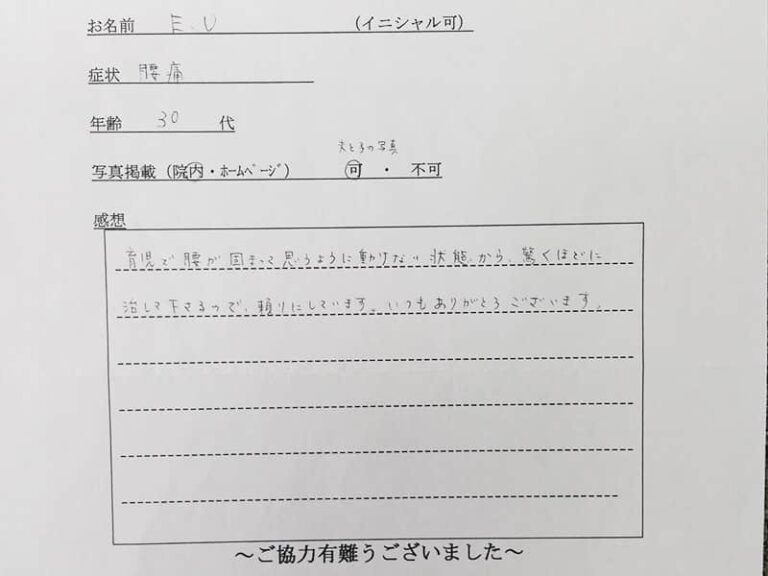 お名前 E.U (イニシャル可)
症状 腰痛
年齢 30 代
うしろの写真
写真掲載(院内・ホームページ) 可 ・ 不可
感想
育児で腰が固まって思うように動けない状態から、驚くほどに
治して下さるので、頼りにしています。いつもありがとうございます。
～ご協力有難うございました～